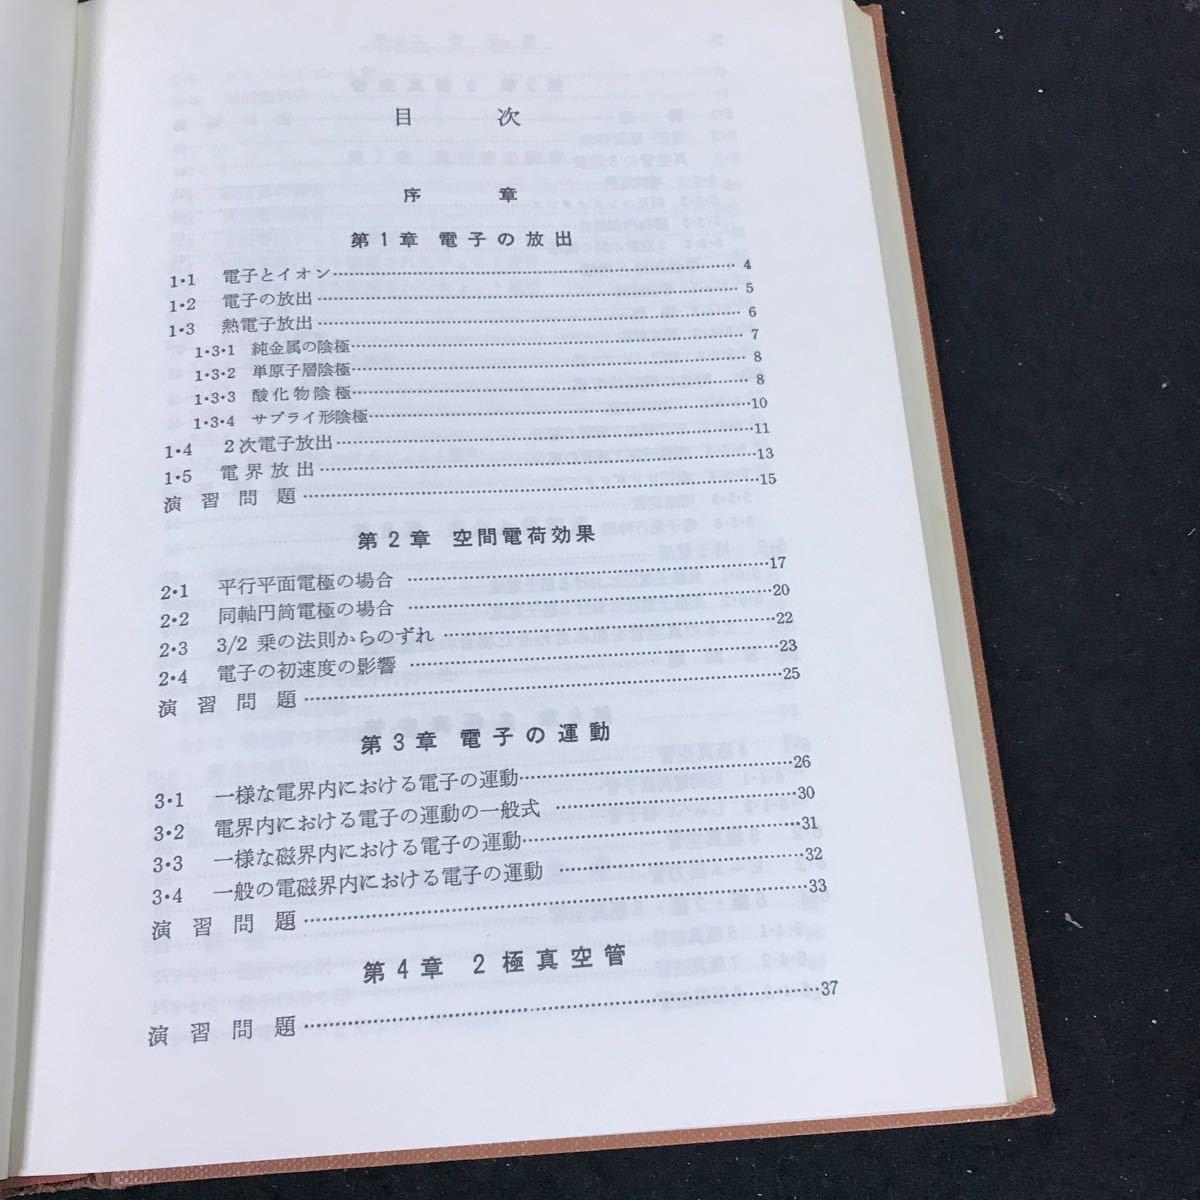 目次
序章
第1章 電子の放出
1・1 電子とイオン……4
1・2 電子の放出……5
1・3 熱電子放出……6
1・3・1 純金属の陰極……7
1・3・2 単原子層陰極……8
1・3・3 酸化物陰極……8
1・3・4 サプライ形陰極……10
1・4 2次電子放出……11
1・5 電界放出……13
演習問題……15
第2章 空間電荷効果
2・1 平行平面電極の場合……17
2・2 同軸円筒電極の場合……20
2・3 3/2 乗の法則からのずれ……22
2・4 電子の初速度の影響……23
演習問題……25
第3章 電子の運動
3・1 一様な電界内における電子の運動……26
3・2 電界内における電子の運動の一般式……30
3・3 一様な磁界内における電子の運動……31
3・4 一般の電磁界内における電子の運動……32
演習問題……33
第4章 2極真空管
演習問題……37